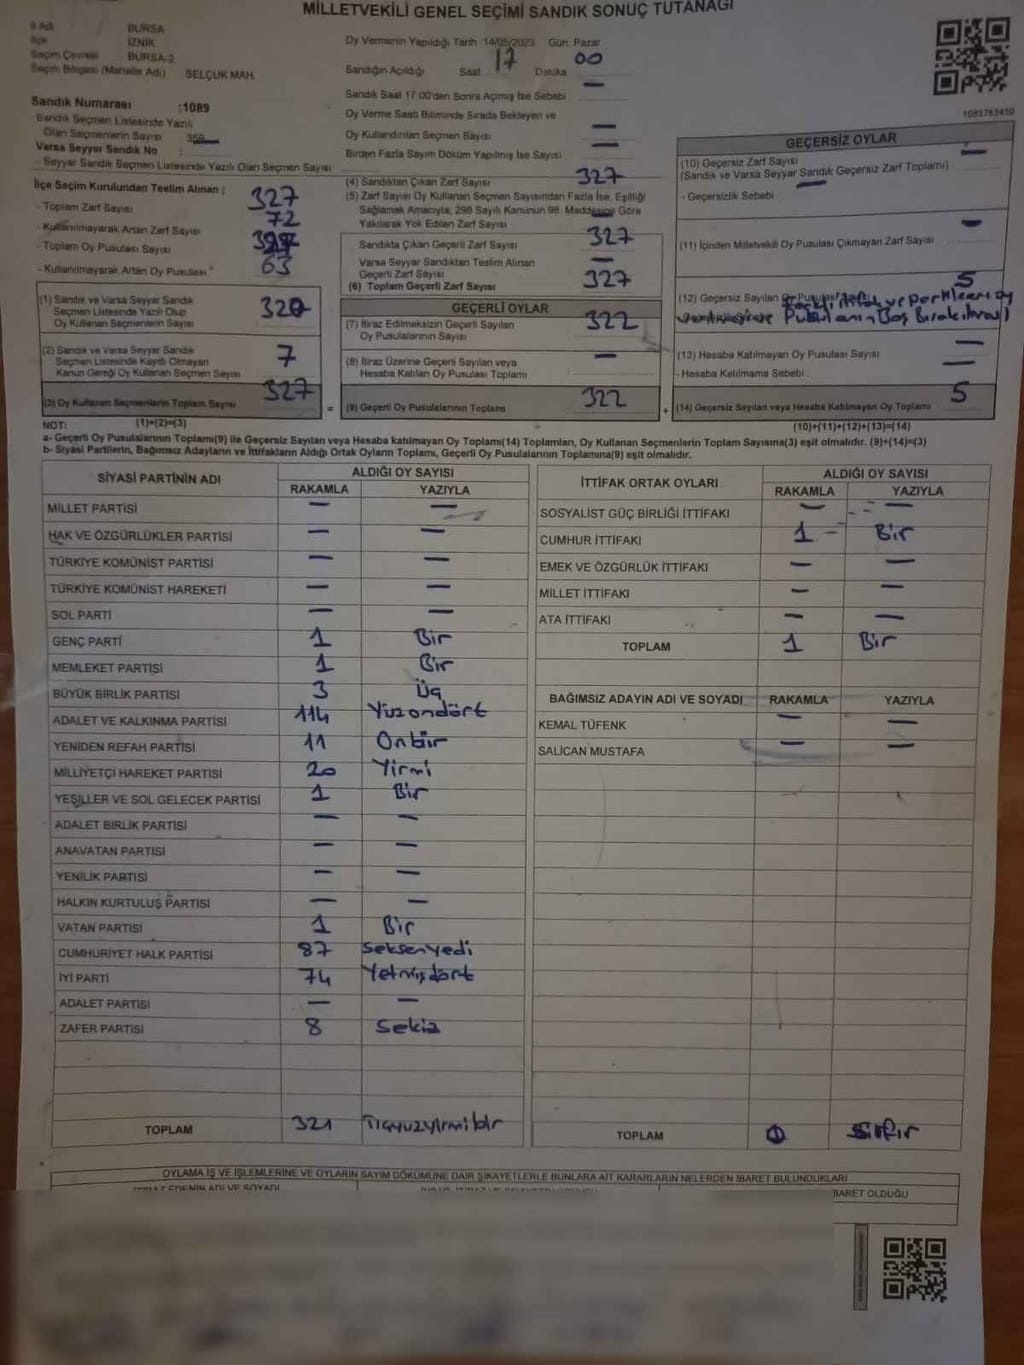 MİLLETVEKİLİ GENEL SEÇİMİ SANDIK SONUÇ TUTANAĞI
İl Adı BURSA
İlçe İZNİK
Seçim Çevresi BURSA-2
Seçim Bölgesi (Mahalle Adı) SELÇUK MAH.
Oy Vermenin Yapıldığı Tarih 14/05/2023 Gün: Pazar
Sandığın Açıldığı Saat 17 Dakika 00
Sandık Saat 17:00'den Sonra Açımış İse Sebebi —
Oy Verme Saati Bitiminde Sırada Bekleyen ve
Oy Kullandırılan Seçmen Sayısı —
Birden Fazla Sayım Döküm Yapılmış İse Sayısı —
1083783450
Sandık Numarası :1089
- Sandık Seçmen Listesinde Yazılı
Olan Seçmenlerin Sayısı
Varsa Seyyar Sandık No
- Seyyar Sandık Seçmen Listesinde Yazılı Olan Seçmen Sayısı
İlçe Seçim Kurulundan Teslim Alınan :
- Toplam Zarf Sayısı 327
- Kullanılmayarak Artan Zarf Sayısı 72
- Toplam Oy Pusulası Sayısı
- Kullanılmayarak Artan Oy Pusulası 63
(1) Sandık ve Varsa Seyyar Sandık
Seçmen Listesinde Yazılı Olup
Oy Kullanan Seçmenlerin Sayısı 320
(2) Sandık ve Varsa Seyyar Sandık
Seçmen Listesinde Kayıtlı Olmayan
Kanun Gereği Oy Kullanan Seçmen Sayısı 7
(3) Oy Kullanan Seçmenlerin Toplam Sayısı 327
(1)+(2)=(3)
(4) Sandıktan Çıkan Zarf Sayısı 327
(5) Zarf Sayısı Oy Kullanan Seçmen Sayısından Fazla İse, Eşitliği
Sağlamak Amacıyla; 298 Sayılı Kanunun 98. Maddesine Göre
Yakılarak Yok Edilen Zarf Sayısı
Sandıkta Çıkan Geçerli Zarf Sayısı 327
Varsa Seyyar Sandıktan Teslim Alınan
Geçerli Zarf Sayısı —
(6) Toplam Geçerli Zarf Sayısı 327
GEÇERLİ OYLAR
(7) İtiraz Edilmeksizin Geçerli Sayılan
Oy Pusulalarının Sayısı 322
(8) İtiraz Üzerine Geçerli Sayılan veya
Hesaba Katılan Oy Pusulası Toplamı —
= (9) Geçerli Oy Pusulalarının Toplamı 322 +
GEÇERSİZ OYLAR
(10) Geçersiz Zarf Sayısı —
(Sandık ve Varsa Seyyar Sandık Geçersiz Zarf Toplamı)
- Geçersizlik Sebebi —
(11) İçinden Milletvekili Oy Pusulası Çıkmayan Zarf Sayısı —
(12) Geçersiz Sayılan Oy Pusulası 5
Pusulanın Boş Bırakılması
(13) Hesaba Katılmayan Oy Pusulası Sayısı —
- Hesaba Katılmama Sebebi —
(14) Geçersiz Sayılan veya Hesaba Katılmayan Oy Toplamı 5
(10)+(11)+(12)+(13)=(14)
NOT:
a- Geçerli Oy Pusulalarının Toplamı(9) ile Geçersiz Sayılan veya Hesaba katılmayan Oy Toplamı(14) Toplamları, Oy Kullanan Seçmenlerin Toplam Sayısına(3) eşit olmalıdır. (9)+(14)=(3)
b- Siyasi Partilerin, Bağımsız Adayların ve İttifakların Aldığı Ortak Oyların Toplamı, Geçerli Oy Pusulalarının Toplamına(9) eşit olmalıdır.
SİYASİ PARTİNİN ADI ALDIĞI OY SAYISI
RAKAMLA YAZIYLA
MİLLET PARTİSİ — —
HAK VE ÖZGÜRLÜKLER PARTİSİ — —
TÜRKİYE KOMÜNİST PARTİSİ — —
TÜRKİYE KOMÜNİST HAREKETİ — —
SOL PARTİ — —
GENÇ PARTİ 1 Bir
MEMLEKET PARTİSİ 1 Bir
BÜYÜK BİRLİK PARTİSİ 3 Üç
ADALET VE KALKINMA PARTİSİ 114 Yüzondört
YENİDEN REFAH PARTİSİ 11 Onbir
MİLLİYETÇİ HAREKET PARTİSİ 20 Yirmi
YEŞİLLER VE SOL GELECEK PARTİSİ 1 Bir
ADALET BİRLİK PARTİSİ — —
ANAVATAN PARTİSİ — —
YENİLİK PARTİSİ — —
HALKIN KURTULUŞ PARTİSİ — —
VATAN PARTİSİ 1 Bir
CUMHURİYET HALK PARTİSİ 87 Seksenyedi
İYİ PARTİ 74 Yetmişdört
ADALET PARTİSİ — —
ZAFER PARTİSİ 8 Sekiz
TOPLAM 321 Üçyüzyirmibir
İTTİFAK ORTAK OYLARI ALDIĞI OY SAYISI
RAKAMLA YAZIYLA
SOSYALİST GÜÇ BİRLİĞİ İTTİFAKI — —
CUMHUR İTTİFAKI 1 Bir
EMEK VE ÖZGÜRLÜK İTTİFAKI — —
MİLLET İTTİFAKI — —
ATA İTTİFAKI — —
TOPLAM 1 Bir
BAĞIMSIZ ADAYIN ADI VE SOYADI RAKAMLA YAZIYLA
KEMAL TÜFENK — —
SALİCAN MUSTAFA — —
TOPLAM Sıfır
OYLAMA İŞ VE İŞLEMLERİNE VE OYLARIN SAYIM DÖKÜMÜNE DAİR ŞİKAYETLERLE BUNLARA AİT KARARLARIN NELERDEN İBARET BULUNDUKLARI
İTİRAZ EDENİN ADI VE SOYADI
İBARET OLDUĞU